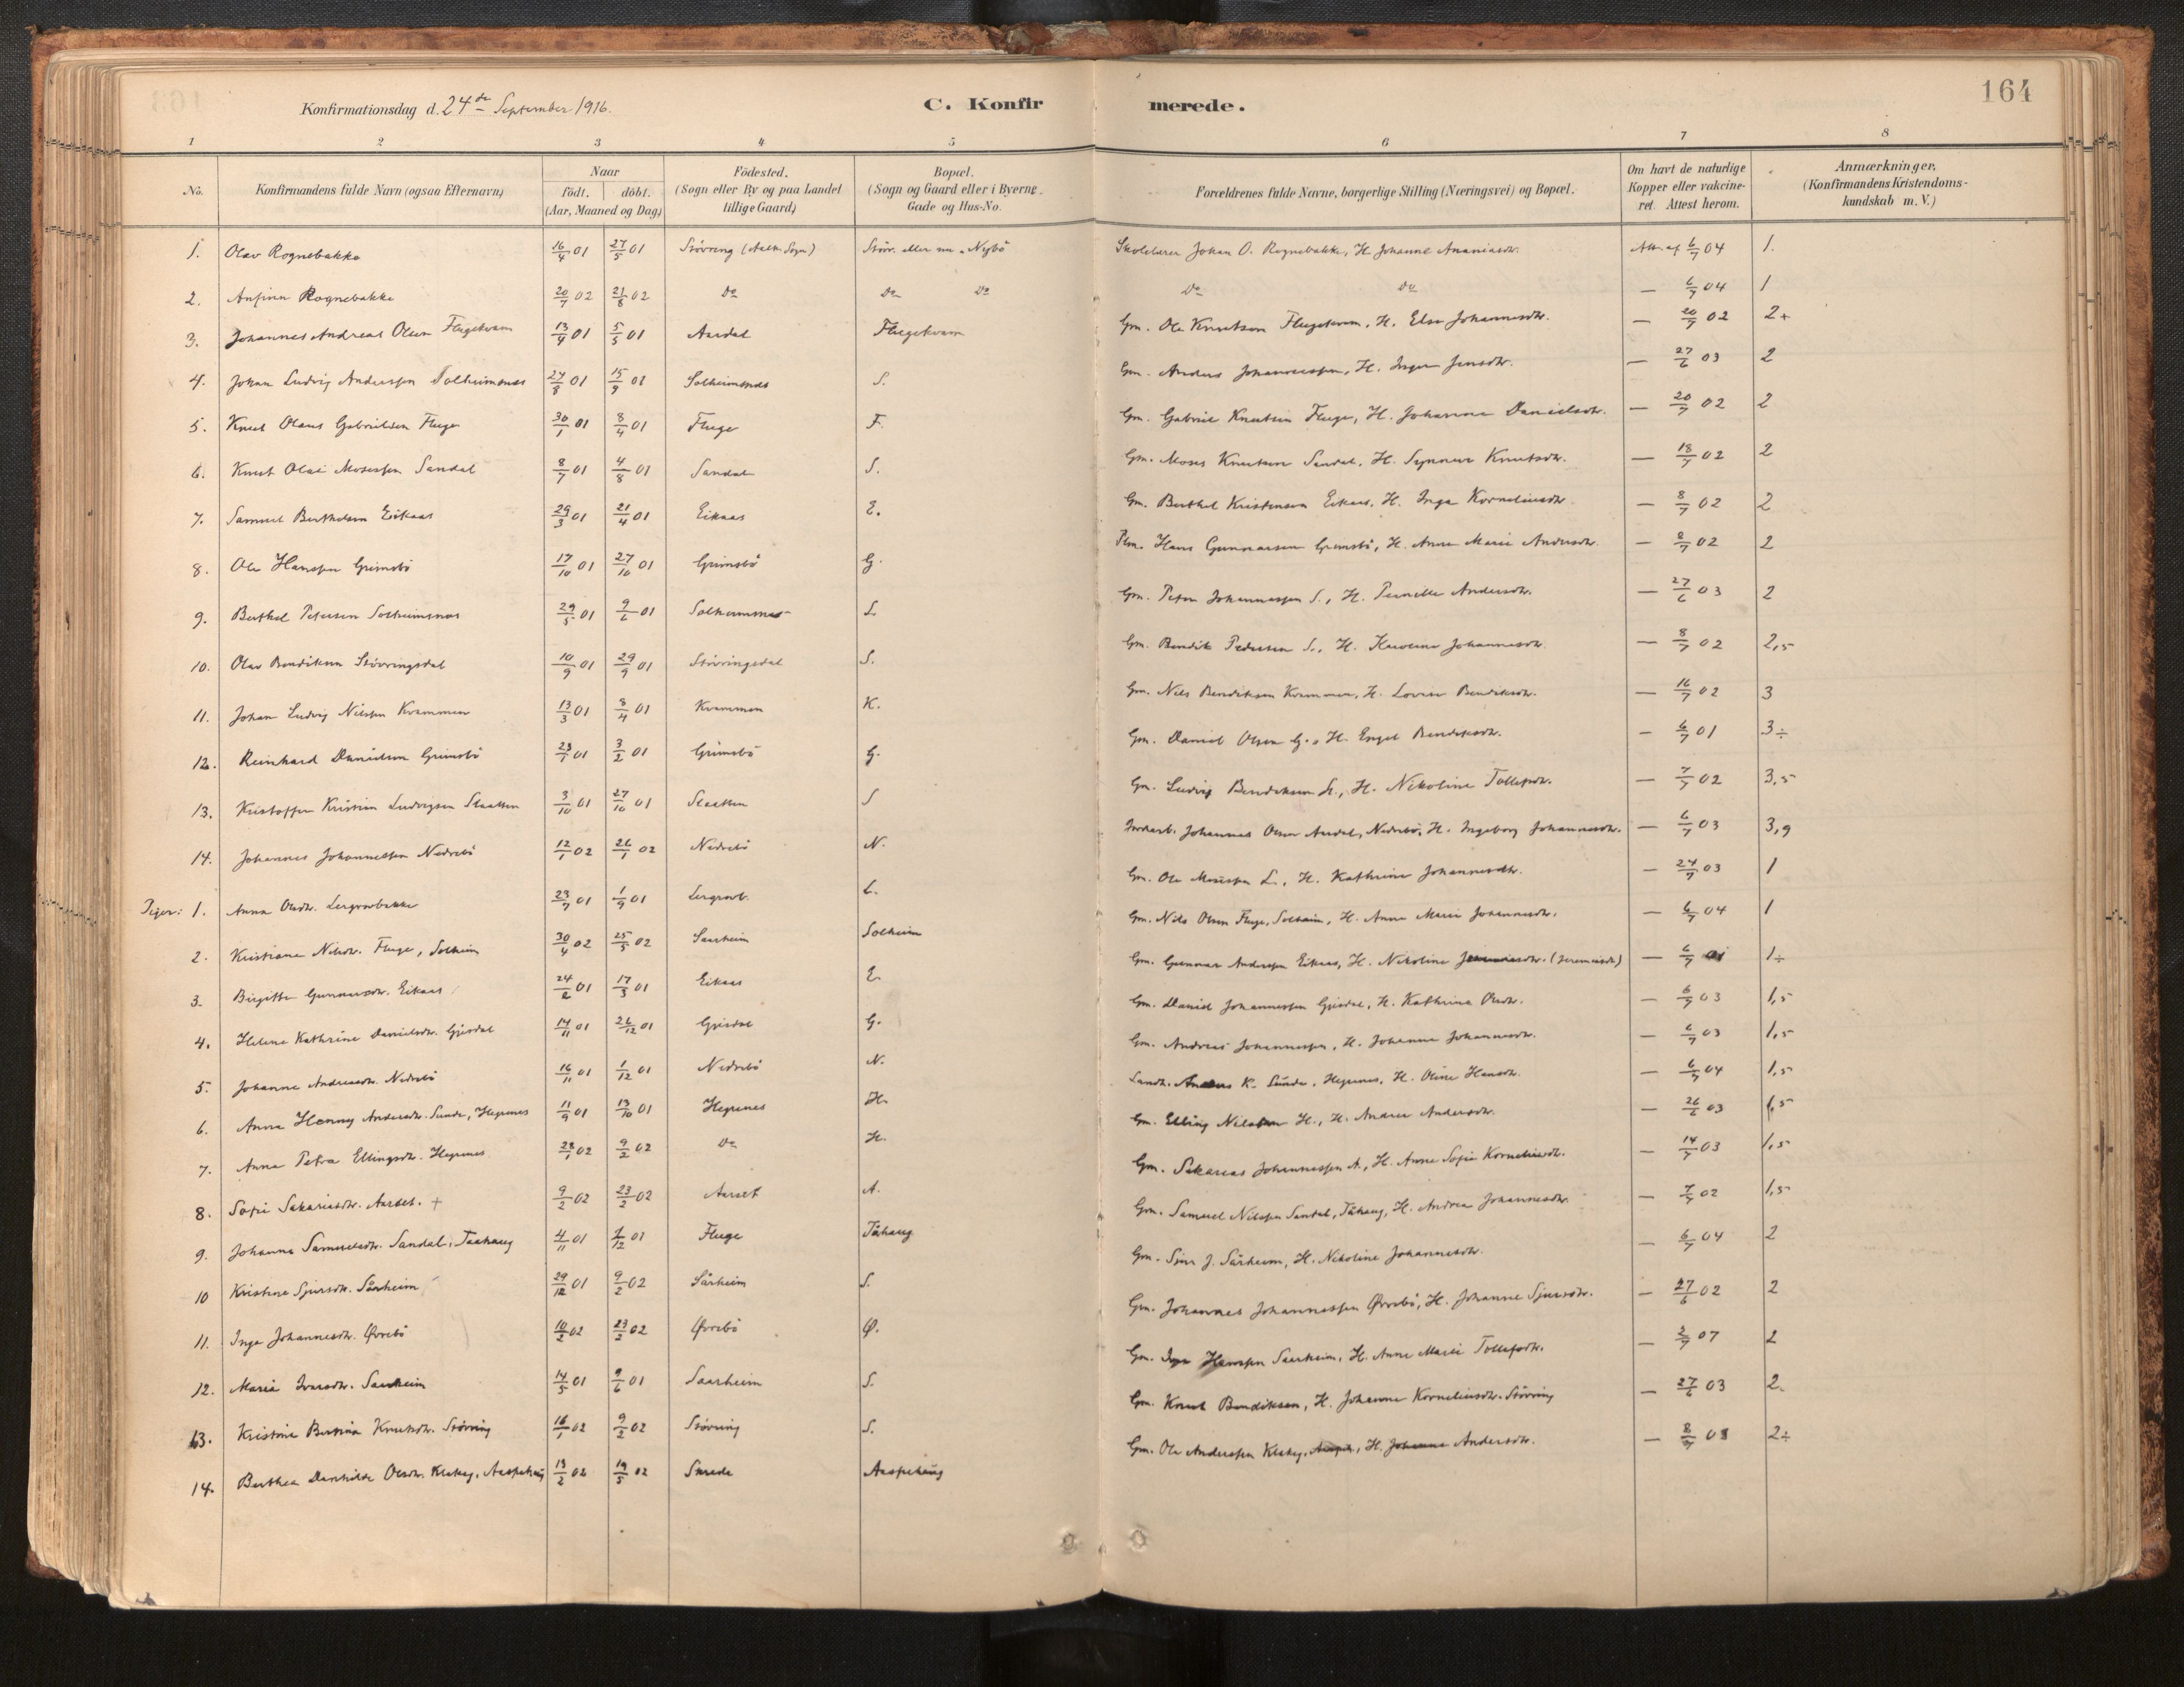 164
Konfirmationsdag d. 24de September 1916.
C. Konfirmerede.
1 2 3 4 5 6 7 8
No.
Konfirmandens fulde Navn (ogsaa Efternavn)
Naar
födt. döbt.
(Aar, Maaned og Dag)
Födested.
(Sogn eller By og paa Landet
tillige Gaard)
Bopæl.
(Sogn og Gaard eller i Byerne
Gade og Hus-No.
Forældrenes fulde Navne, borgerlige Stilling (Næringsvei) og Bopæl.
Om havt de naturlige
Kopper eller vakcine-
ret. Attest herom.
Anmærkninger,
(Konfirmandens Kristendoms-
kundskab m. V.)
1. Olav Rognebakke 16/4 01 27/5 01 Stövring (Aalh. Sogn) Stövr. eller nu Nybö Skolelærer Johan O. Rognebakke, H. Johanne Ananiasdtr. Att. af 6/7 04 1.
2. Anfinn Rognebakke 20/7 02 21/8 02 Do Do Do Do Do — 6/7 04 1
3. Johannes Andreas Olsen Flugekvam 13/4 01 5/5 01 Aardal Flugekvam Gm. Ole Knutsen Flugekvam, H. Else Johannesdtr. — 20/7 02 2+
4. Johan Ludvig Anderssen Solheimsnes 24/8 01 15/9 01 Solheimsnes S. Gm. Anders Johannessen, H. Inger Jensdtr. — 27/6 03 2
5. Knut Olaus Gabrielsen Fluge 30/1 01 8/4 01 Fluge F. Gm. Gabriel Knutsen Fluge, H. Johanne Danielsdtr. — 20/7 02 2
6. Knut Olai Mosessen Sandal 8/7 01 4/8 01 Sandal S. Gm. Moses Knutsen Sandal, H. Synneve Knutsdtr. — 18/7 02 2
7. Samuel Berthelsen Eikaas 29/3 01 21/4 01 Eikaas E. Gm. Berthel Kristensen Eikaas, H. Inga Korneliusdtr. — 8/7 02 2
8. Ole Hanssen Grimsbö 17/10 01 27/10 01 Grimsbö G. Plm. Hans Gunnarsen Grimsbö, H. Anne Marie Andersdtr. — 8/7 02 2
9. Berthel Petersen Solheimsnes 29/5 01 9/6 01 Solheimsnes S. Gm. Peter Johannessen S., H. Pernille Andersdtr. — 27/6 03 2
10. Olav Bendiksen Stövringsdal 10/9 01 29/9 01 Stövringsdal S. Gm. Bendik Pedersen S., H. Karoline Johannesdtr. — 8/7 02 2,5
11. Johan Ludvig Nilssen Kvammen 13/3 01 8/4 01 Kvammen K. Gm. Nils Bendiksen Kvammen, H. Lovise Bendiksdtr. — 16/7 02 3
12. Reinhard Danielsen Grimsbö 23/1 01 3/2 01 Grimsbö G. Gm. Daniel Olsen G., H. Engel Bendiksdtr. — 6/7 01 3÷
13. Kristoffer Kristian Ludvigsen Slaatten 3/10 01 27/10 01 Slaatten S Gm. Ludvig Bendiksen S., H. Nikoline Tollefsdtr. — 7/7 02 3,5
14. Johannes Johannessen Nedrebö 12/1 02 26/1 02 Nedrebö N. Jordarb. Johannes Olsen Aardal, Nedrebö, H. Ingeborg Johannesdtr. — 6/7 03 3,9
Piger: 1. Anna Olsdtr. Lergrovbakke 23/7 01 1/9 01 Lergrovb. L. Gm. Ole Mosessen L., H. Kathrine Johannesdtr. — 24/7 03 1
2. Kristiane Nilsdtr. Fluge, Solheim 30/4 02 25/5 02 Saarheim Solheim Gm. Nils Olsen Fluge, Solheim, H. Anne Marie Johannesdtr. — 6/7 04 1
3. Birgitte Gunnarsdtr. Eikaas 24/2 01 17/3 01 Eikaas E. Gm. Gunnar Anderssen Eikaas, H. Nikoline (Jeremiasdtr) — 6/7 01 1÷
4. Helene Kathrine Danielsdtr. Gjisdal 14/11 01 26/12 01 Gjisdal G. Gm. Daniel Johannessen Gjisdal, H. Kathrina Olsdtr. — 6/7 03 1,5
5. Johanne Andreasdtr. Nedrebö 16/11 01 1/12 01 Nedrebö N. Gm. Andreas Johannessen, H. Johanne Johannesdtr. — 6/7 03 1,5
6. Anna Henny Andersdtr. Sunde, Hegrenes 11/9 01 13/10 01 Hegrenes H. Landh. Anders K. Sunde, Hegrenes, H. Oline Hansdtr. — 6/7 04 1,5
7. Anna Petra Ellingsdtr. Hegrenes 28/1 02 9/2 02 Do H. Gm. Elling Nilssen H., H. Andrea Andersdtr. — 26/6 03 1,5
8. Sofie Sakariasdtr. Aarset. + 9/2 02 23/2 02 Aarset A. Gm. Sakarias Johannessen A., H. Anne Sofie Korneliusdtr. — 14/7 03 1,5
9. Johanna Samuelsdtr. Sandal, Taahaug 4/11 01 1/12 01 Fluge Tåhaug Gm. Samuel Nilssen Sandal, Tåhaug, H. Andrea Johannesdtr. — 7/7 02 1,5
10 Kristine Sjursdtr. Sårheim 29/12 01 9/2 02 Sårheim S. Gm. Sjur J. Sårheim, H. Nikoline Johannesdtr. — 6/7 04 2
11. Inga Johannesdtr. Øvrebö 10/2 02 23/2 02 Øvrebö Ø. Gm. Johannes Johannessen Øvrebö, H. Johanne Sjursdtr. — 27/6 02 2
12. Maria Ivarsdtr. Saarheim 14/5 01 9/6 01 Saarheim S. Gm. Hanssen Saarheim, H. Anne Marie Tollefsdtr. — 2/7 07 2
13. Kristine Bertina Knutsdtr. Stövring 16/1 02 9/2 02 Stövring S. Gm. Knut Bendiksen, H. Johanne Korneliusdtr. Stövring — 27/6 03 2.
14. Berthea Olsdtr. Klakeg, Aaspehaug 13/2 02 19/5 02 Aaspehaug Gm. Ole Anderssen Klakeg, H. Johanne Andersdtr. — 8/7 03 2÷